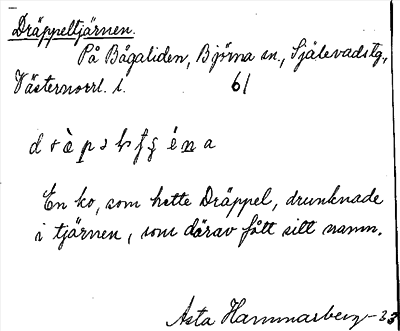 Dräppeltjärnen.
På Bågaliden, Björna sn., Själevadstg.,
Västernorrl. l. 61
En ko, som hette Dräppel, drunknade
i tjärnen, som därav fått sitt namn.
Asta Hammarberg -23